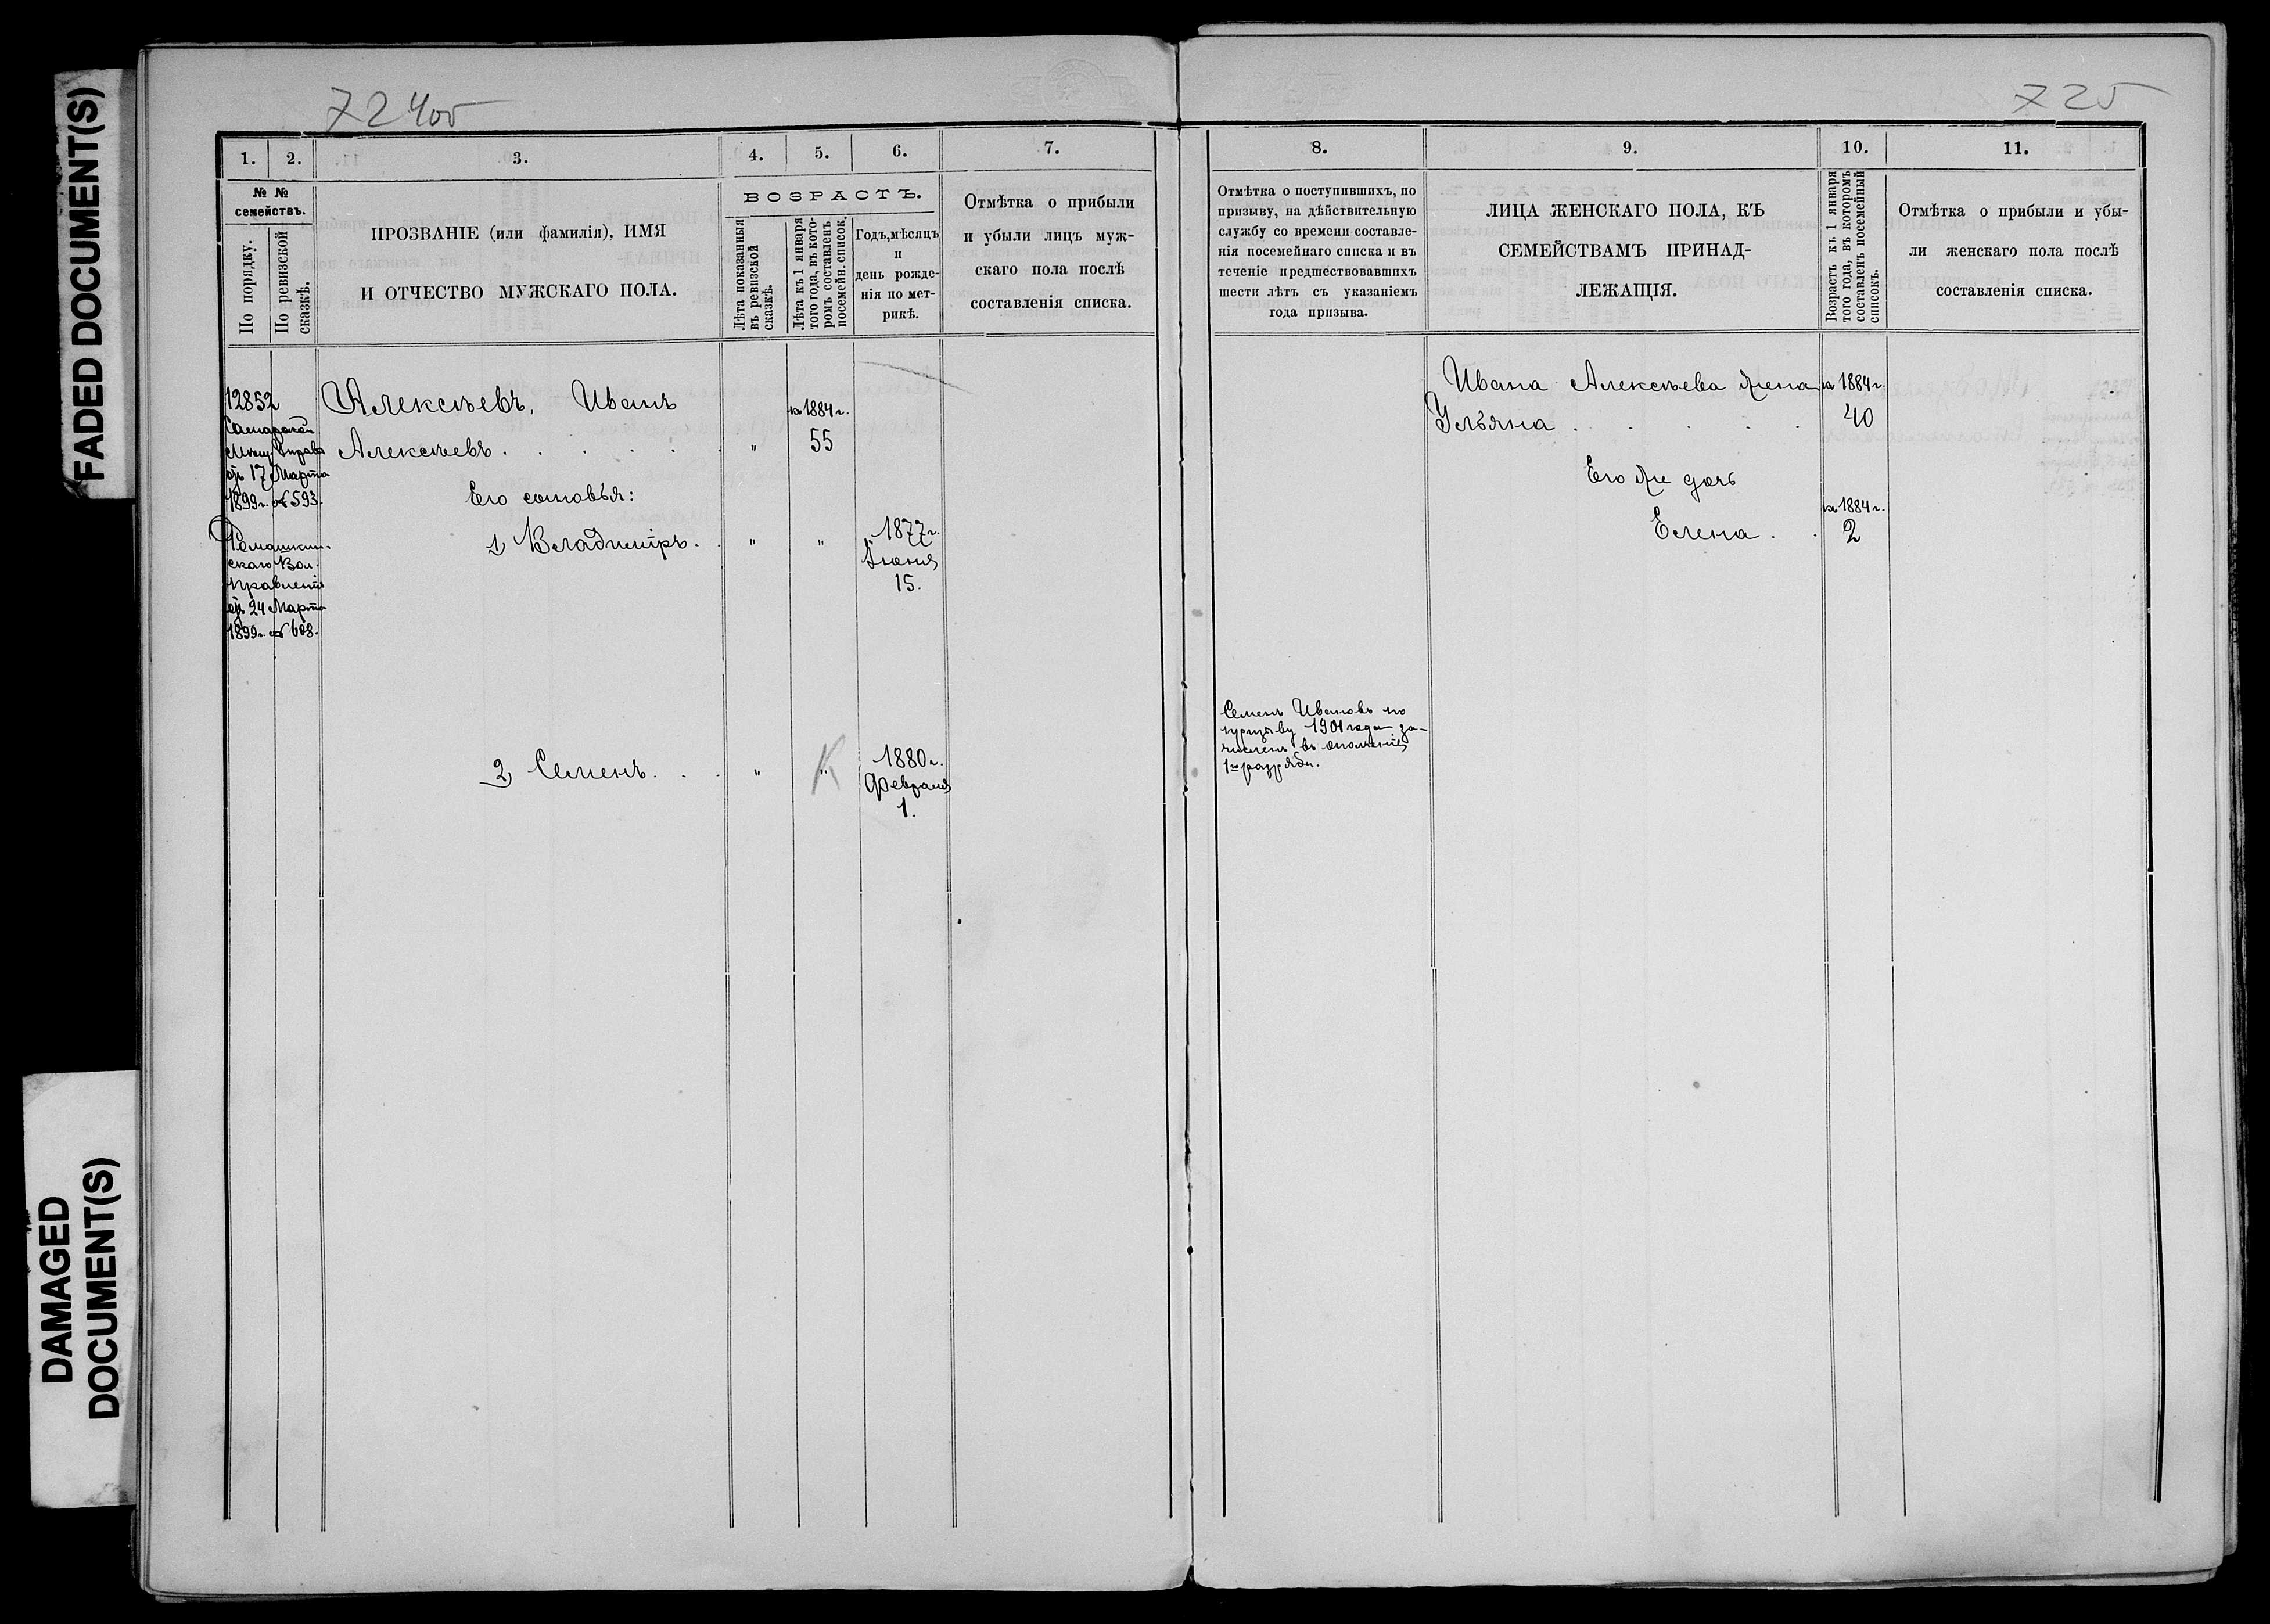 FADED DOCUMENT(S)
DAMAGED
DOCUMENT(S)
724об
1.
2.
3.
4.
5.
6.
7.
№ №
семействъ.
По порядку.
По ревизской
сказкѣ.
ПРОЗВАНІЕ (или фамилія), ИМЯ
И ОТЧЕСТВО МУЖСКАГО ПОЛА.
ВОЗРАСТЪ.
Лѣта показанныя
въ ревизской
сказкѣ.
Лѣта къ 1 января
того года, въ кото-
ромъ составленъ
посемейн. списокъ.
Годъ, мѣсяцъ
и
день рожде-
нія по мет-
рикѣ.
Отмѣтка о прибыли
и убыли лицъ муж-
скаго пола послѣ
составленія списка.
12852
Самарской
Мѣщ. Управы
отъ 17 Марта
1899 г. № 593.
скаго Вол.
Правленія
отъ 24 Марта
1899 г. № 608.
Алексѣевъ, Иванъ
Алексѣевъ . . . . .
"
къ 1884 г.
55
Его сыновья:
1) Владиміръ. .
"
"
1877 г.
Іюня
15.
2) Семенъ. . .
"
"
К
1880 г.
Февраля
1.
725
8.
9.
10.
11.
Отмѣтка о поступившихъ, по
призыву, на дѣйствительную
службу со времени составле-
нія посемейнаго списка и въ
теченіе предшествовавшихъ
шести лѣтъ съ указаніемъ
года призыва.
ЛИЦА ЖЕНСКАГО ПОЛА, КЪ
СЕМЕЙСТВАМЪ ПРИНАД-
ЛЕЖАЩІЯ.
Возрастъ къ 1 января
того года, въ которомъ
составленъ посемейный
списокъ.
Отмѣтка о прибыли и убы-
ли женскаго пола послѣ
составленія списка.
Ивана Алексѣева жена
къ 1884 г.
Ульяна . . . . .
40
Его же дочь
къ 1884 г.
Елена . .
2
Семенъ Ивановъ по
призыву 1901 года за-
численъ въ ополченіе
1го разряда.